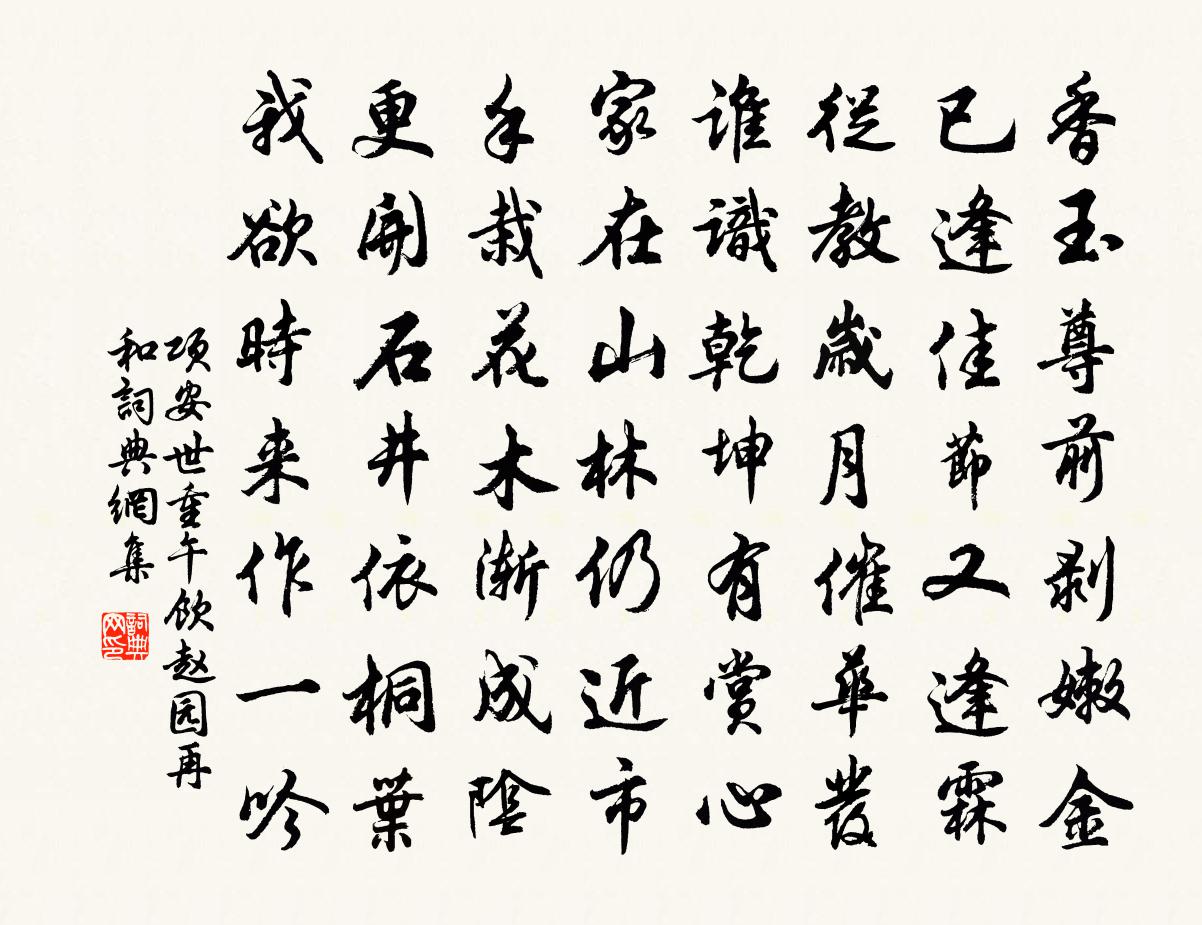 香玉尊前剥嫩金
已逢佳節又逢霖
從教歲月催華髮
誰識乾坤有賞心
家在山林仍近市
手栽花木漸成陰
更開石井依桐葉
我欲時来作一吟
项安世重午饮赵园再
和詞典網集
詞典网印